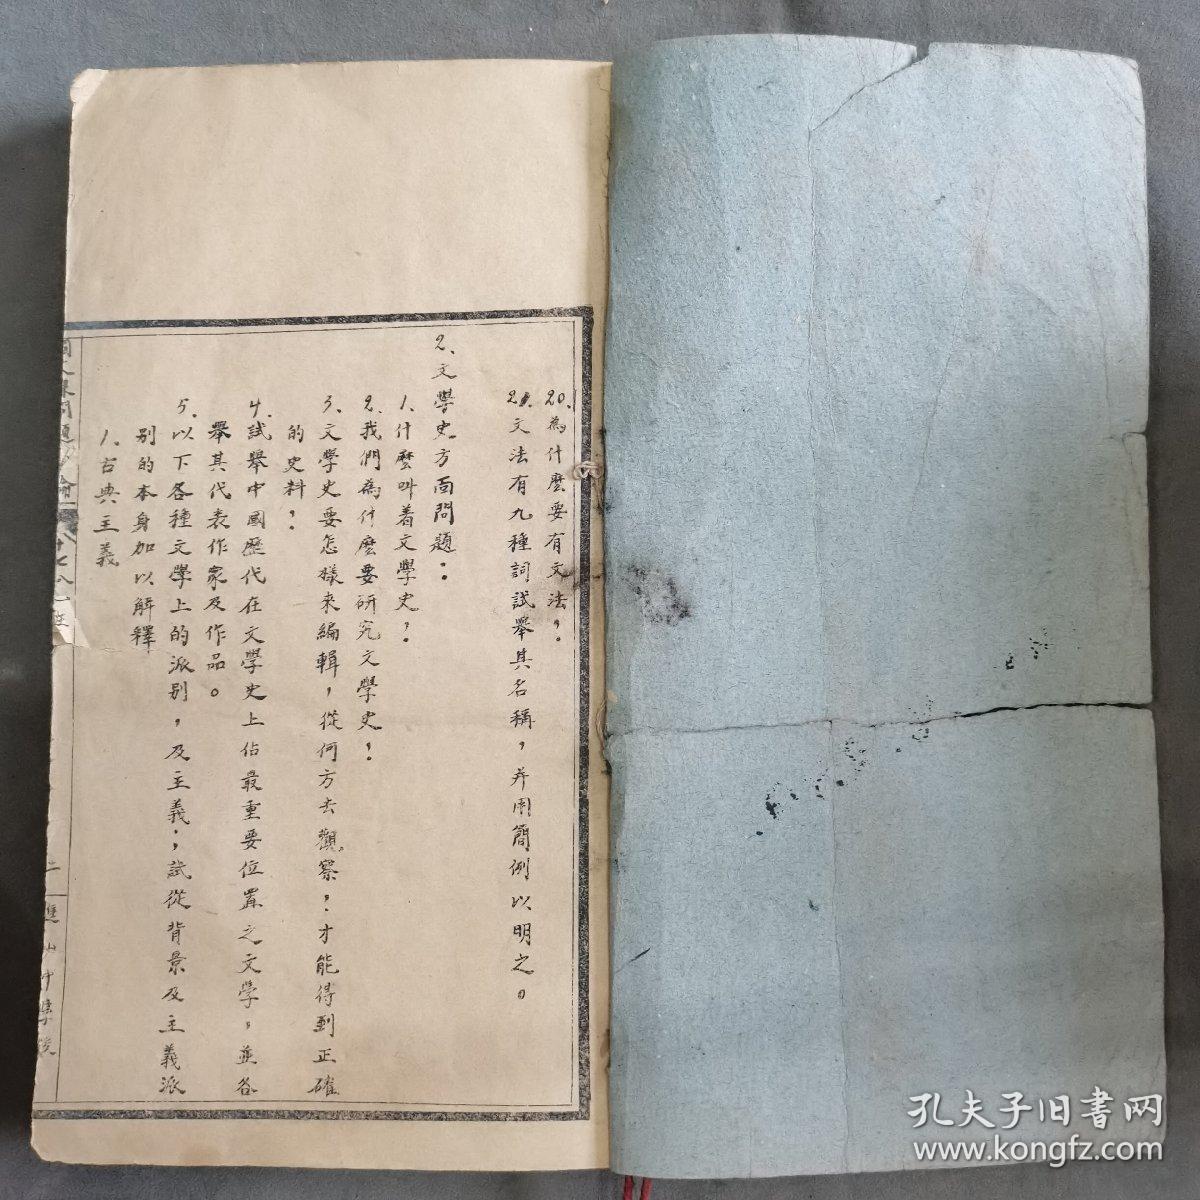 20、為什麽要有文法？
21、文法有九種詞試舉其名稱，并用簡例以明之。
2、文學史方面問題：
1、什麽叫着文學史？
2、我們為什麽要研究文學史？
3、文學史要怎樣來編輯，從何方去觀察，才能得到正確
的史料？
4、試舉中國歷代在文學史上佔最重要位置之文學，並各
舉其代表作家及作品。
5、以下各種文學上的派别，及主義，試從背景及主義派
别的本身加以解釋
1、古典主義
孔夫子旧书网
www.kongfz.com